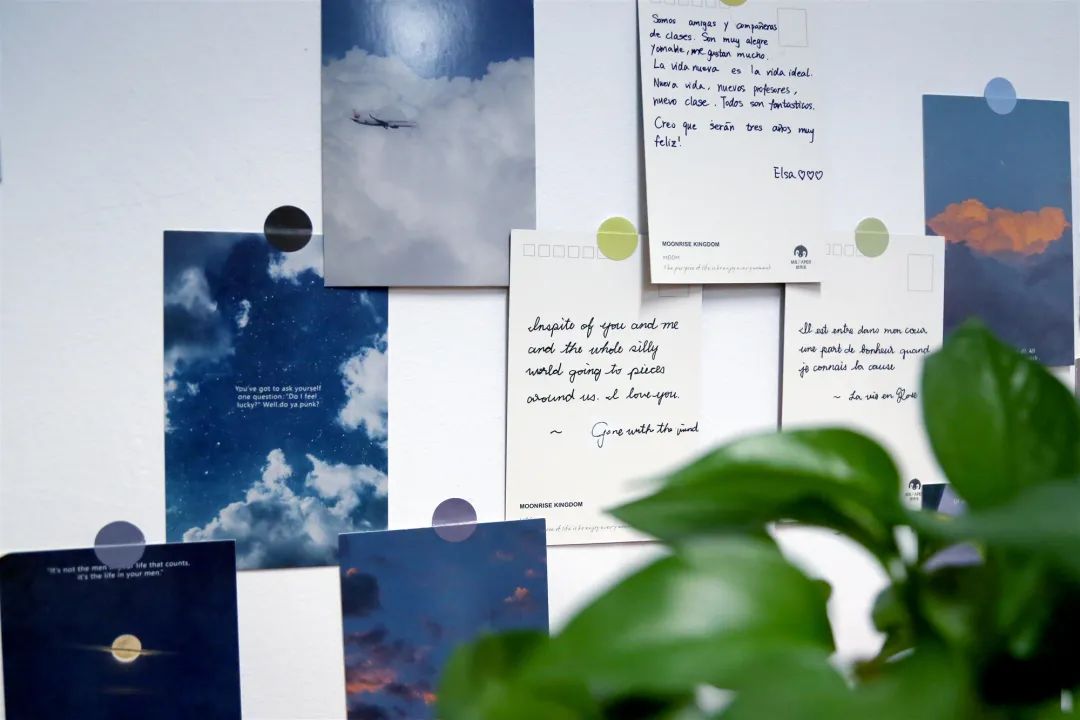 Somos amigas y compañeras
de clases. Son muy alegre
y amable, me gustan mucho.
La vida nueva es la vida ideal.
Nueva vida, nuevos profesores,
nuevo clase. Todos son fantasticos.
Creo que serán tres años muy
feliz!
Elsa♡♡♡
MOONRISE KINGDOM
The purpose of life is to enjoy every moment
You've got to ask yourself
one question: "Do I feel
lucky?" Well, do ya punk?
Inspite of you and me
and the whole silly
world going to pieces
around us. I love you.
~ Gone with the wind
MOONRISE KINGDOM
of life is to enjoy every
Il est entre dans mon cœur
une part de bonheur quand
je connais la cause
~ La vie en Rose
"It's not the men your life that counts,
it's the life in your men."